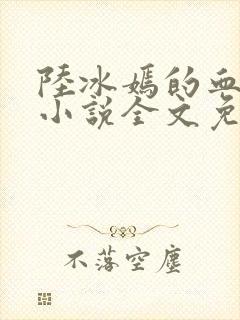 陸冰嫣的血
小說全文免
不落空塵